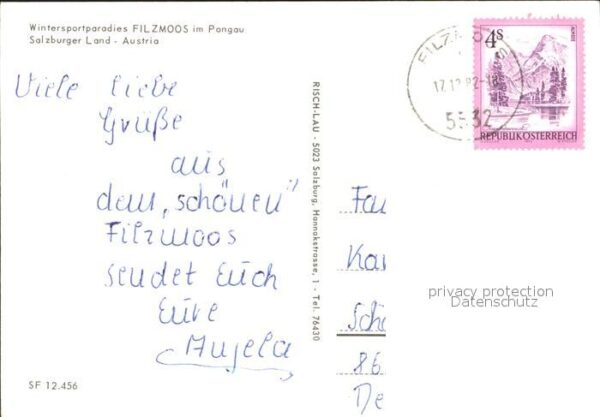 Wintersportparadies FILZMOOS im Pongau
Salzburger Land - Austria
Viele liebe
Grüße
aus
dem „schönen"
Filzmoos
sendet Euch
Eure
Angela
SF 12.456
RISCH-LAU - 5023 Salzburg, Hannakstrasse, 1 - Tel. 76430
FILZMOOS
5532
4S
REPUBLIK ÖSTERREICH
Fam
Kar
privacy protection
Datenschutz
86